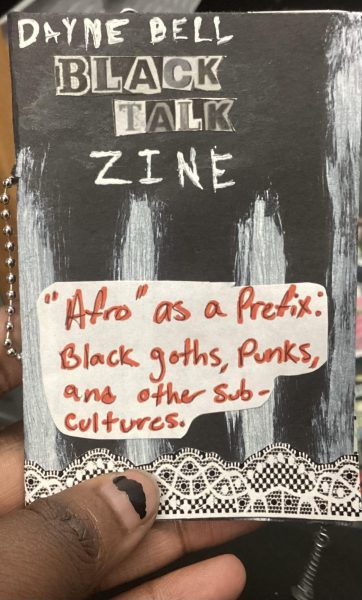 DAYNE BELL
BLACK
TALK
ZINE
"Afro" as a Prefix:
Black goths, Punks,
and other Sub-
Cultures.